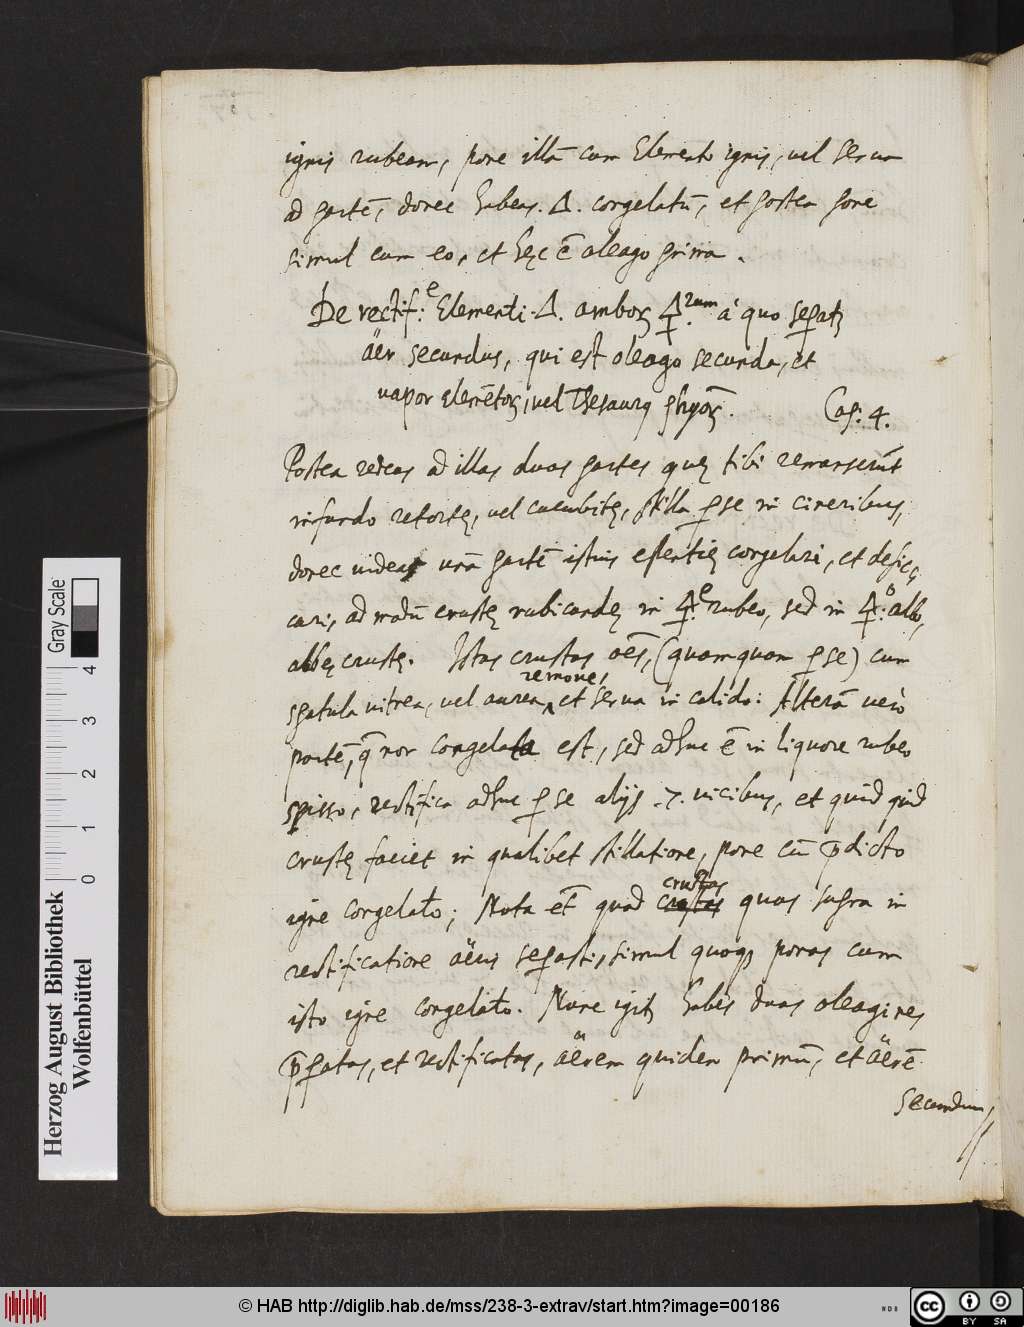 ignis rubeam, pone illã cum Elemento ignis, vel serva
ad partẽ, donec habeas. Δ. congelatũ, et postea pone
simul cum eo, et hęc ẽ oleago prima.
De rectif:e Elementi. Δ. amboꝝ 🜍rum. á quo sepatꝝ
äer secundus, qui est oleago secunda, et
vapor elemẽtoꝝ, vel Thesaurꝰ phyoꝝ. Cap: 4.
Postea redeas ad illas duas partes quę tibi remanserũt
in fundo retortę, vel cucubitę, stilla ꝑ se in cineribus,
donec videas unã partẽ istius essentię congelari, et desicc̨
cari, ad modũ crustę rubicundę in 🜍e. rubeo, sed in 🜍o. albo,
albę crustę. Istas crustas oẽs, (quamquam ꝑ se) cum
spatula vitrea, vel aurea ^ remove, et serva in calido: Alterã verò
partẽ, q̃ non congelata est, sed adhuc ẽ in liquore rubeo
spisso, rectifica adhuc ꝑ se alijs .7. vicibus, et quid quid
crustę faciet in qualibet stillatione, pone cũ p̃dicto
igne congelato; Nota et̃ quod crustas crustas quas supra in
rectificatione äeris seꝑasti, simul quoqꝫ ponas cum
isto igne congelato. Nunc igitꝝ habes duas oleagines
p̃ꝑatas, et rectificatas, äerem quidem primũ, et äerẽ
secundum
Herzog August Bibliothek
Wolfenbüttel
0 1 2 3 4
Gray Scale
© HAB http://diglib.hab.de/mss/238-3-extrav/start.htm?image=00186
NDB
cc BY SA